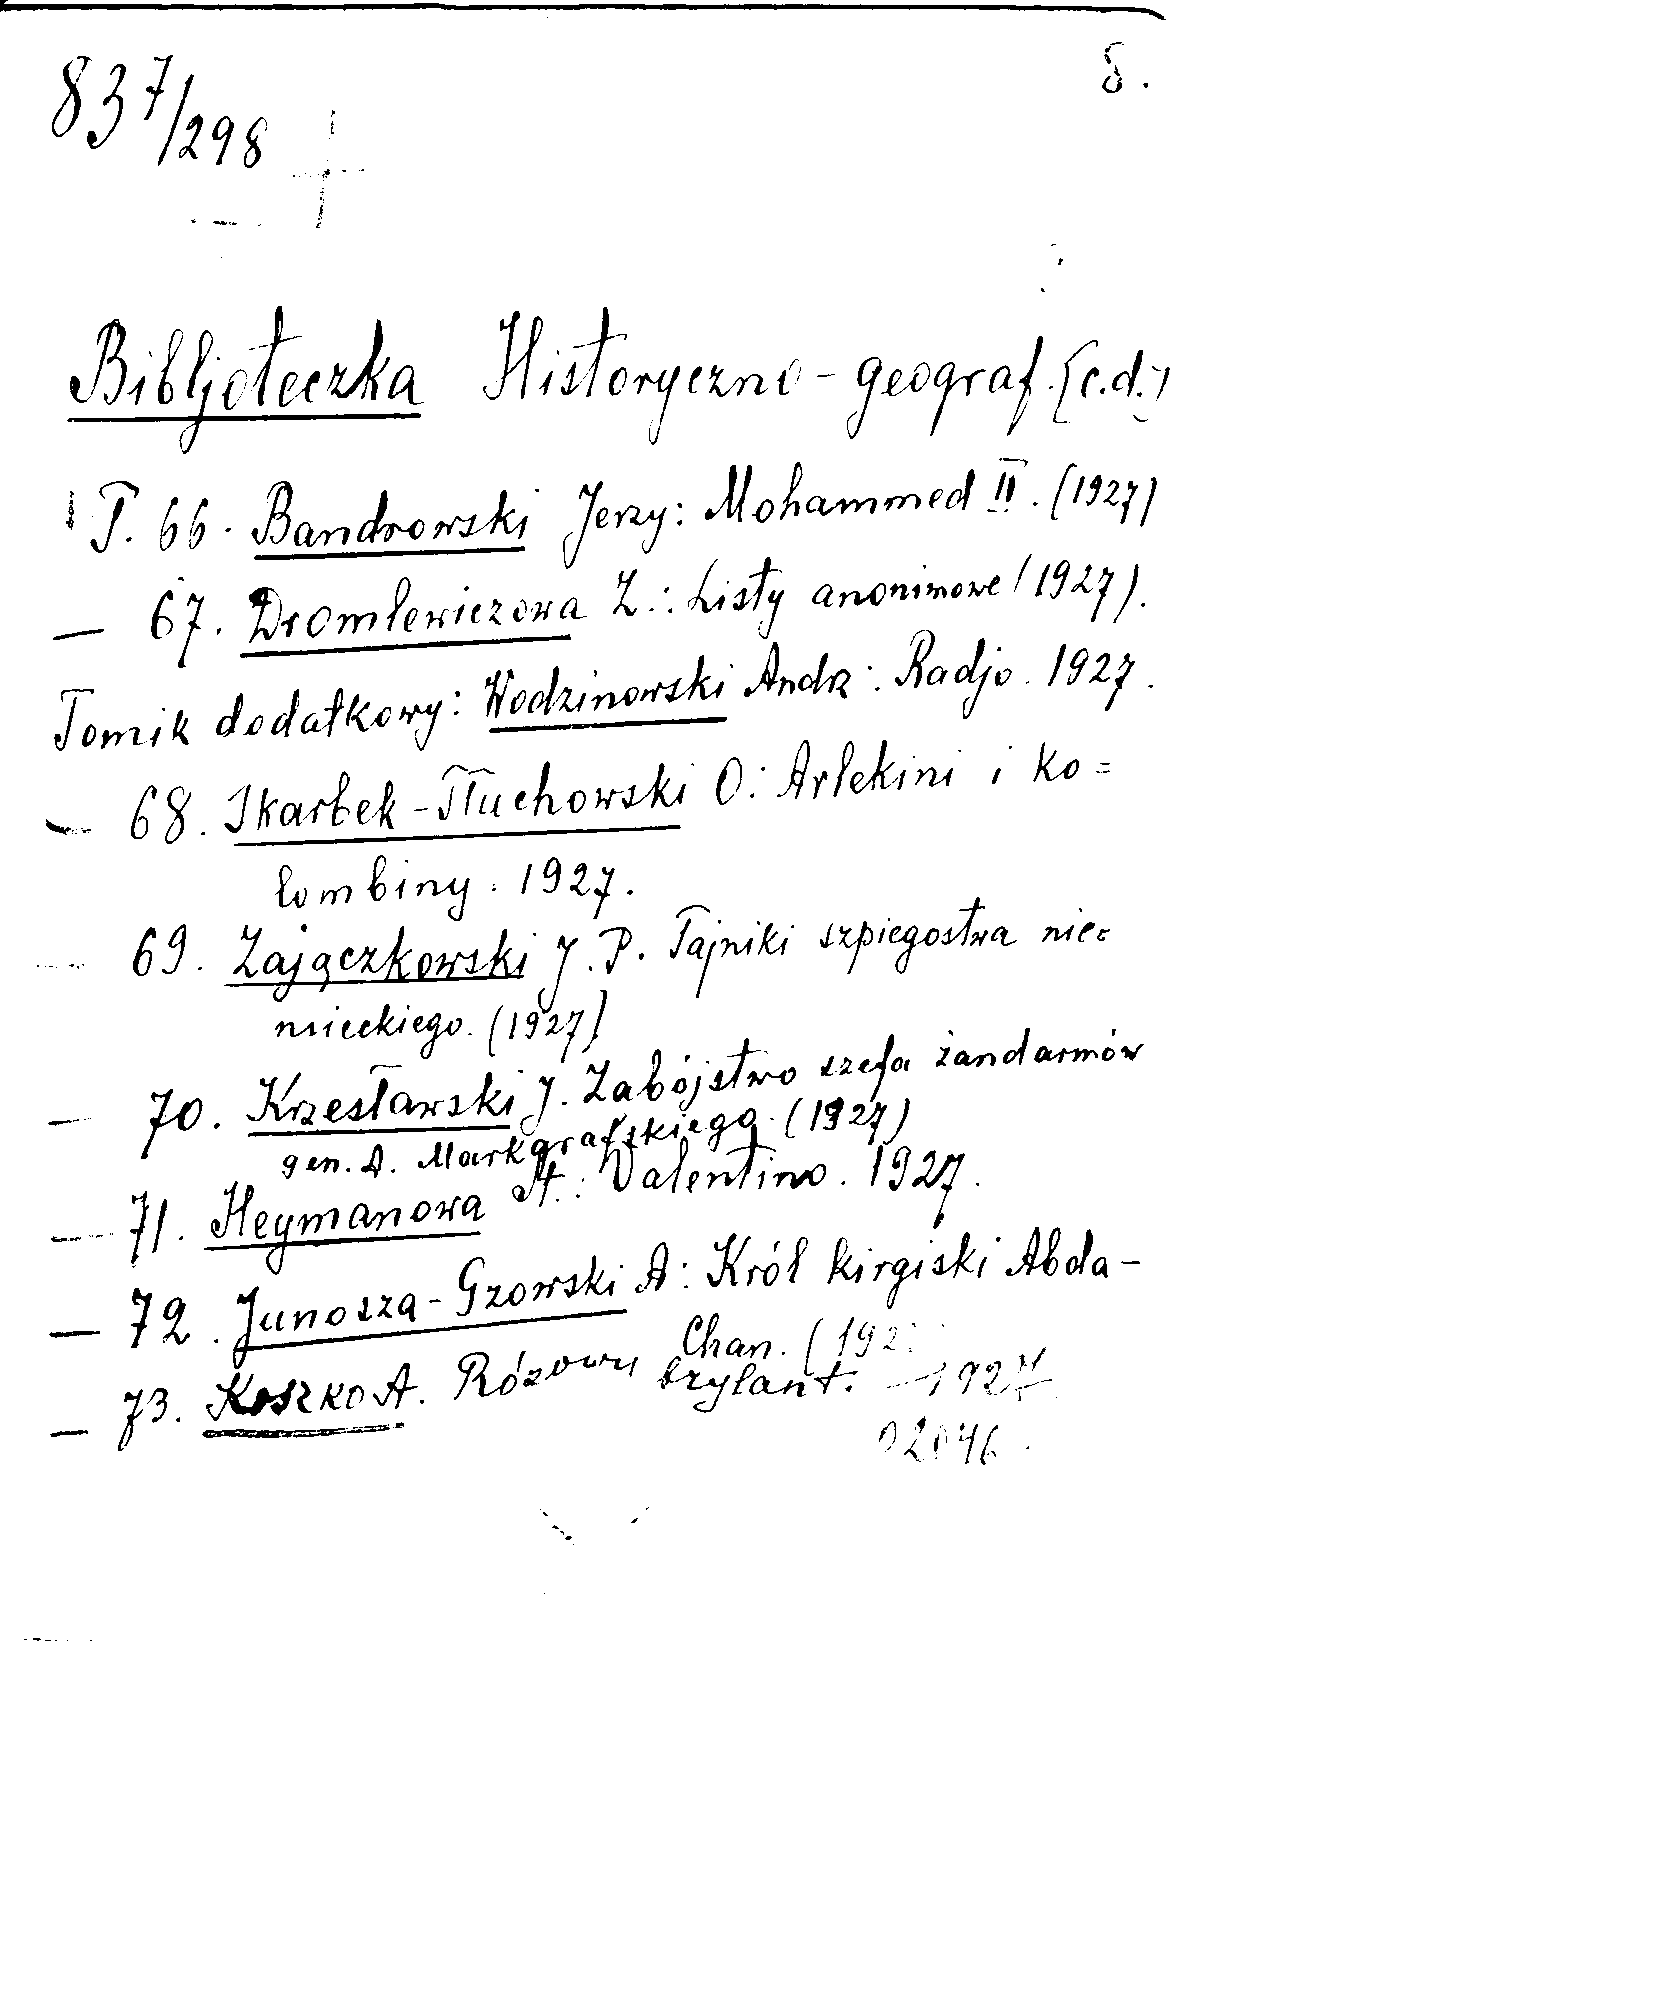 8.
837/298
Bibljoteczka Historyczno-geograf. [c.d.]
T. 66. Bandrowski Jerzy: Mohammed II. (1927)
— 67. Dromlewiczowa Z.: Listy anonimowe (1927).
Tomik dodatkowy: Wodzinowski Andrz: Radjo. 1927.
— 68. Skarbek-Tłuchowski O: Arlekini i ko=
lombiny. 1927.
— 69. Zajączkowski J. P. Tajniki szpiegostwa nie=
mieckiego. (1927)
— 70. Krzesławski J. Zabójstwo szefa żandarmów
gen. A. Markgrafskiego. (1927)
— 71. Heymanowa A.: Valentino. 1927.
— 72. Junosza-Gzowski A: Król kirgiski Abda-
Chan. (192
— 73. Koszko A. Różowy brylant. — 1927